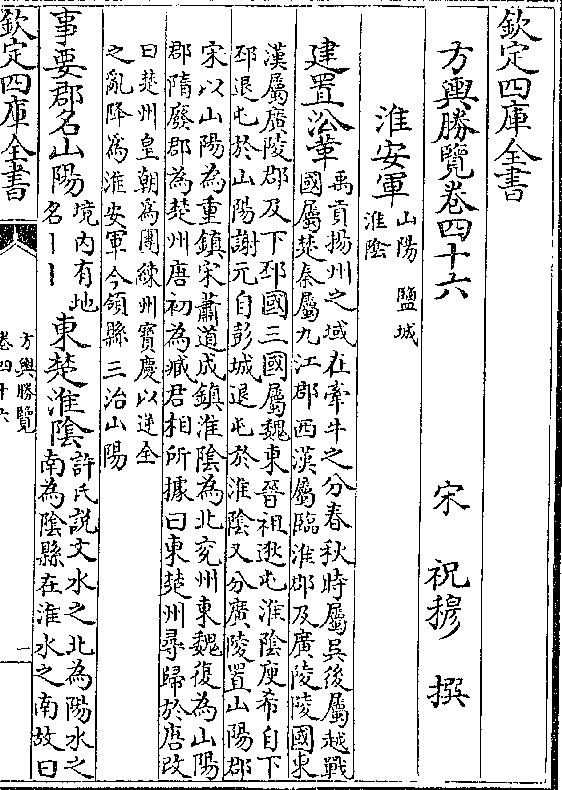 欽定四庫全書
方輿勝覽卷四十六　宋　祝穆　撰
淮安軍　山陽　鹽城
淮陰
建置沿革　禹貢揚州之域在牽牛之分春秋時屬吳後屬越戰
國屬楚秦屬九江郡西漢屬臨淮郡及廣陵陵國東
漢屬廣陵郡及下邳國三國屬魏東晉祖逖屯淮陰庾希自下
邳退屯於山陽謝元自彭城退屯於淮陰又分廣陵置山陽郡
宋以山陽為重鎮宋蕭道成鎮淮陰為北兗州東魏復為山陽
郡隋廢郡為楚州唐初為臧君相所據曰東楚州尋歸於唐改
曰楚州皇朝為團練州寶慶以逆全
之亂降為淮安軍今領縣三治山陽
事要郡名山陽　境內有地
名丨丨
東楚淮陰　許氏説文水之北為陽水之
南為陰縣在淮水之南故曰
欽定四庫全書
方輿勝覽
卷四十六
一